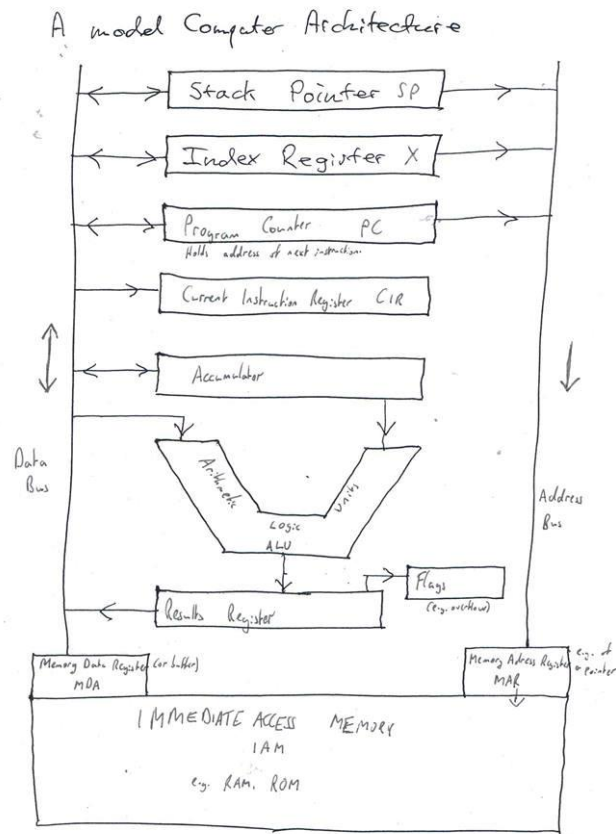 A model Computer Architecture
Stack Pointer SP
Index Register X
Program Counter PC
Holds address of next instruction.
Current Instruction Register CIR
Accumulator
Data
Bus
Arithmetic
Logic
Units
ALU
Address
Bus
Flags
(e.g. overflow)
Results Register
Memory Data Register (or buffer)
MDA
Memory Adress Register
MAR
e.g. of
a pointer
IMMEDIATE ACCESS MEMORY
IAM
e.g. RAM, ROM